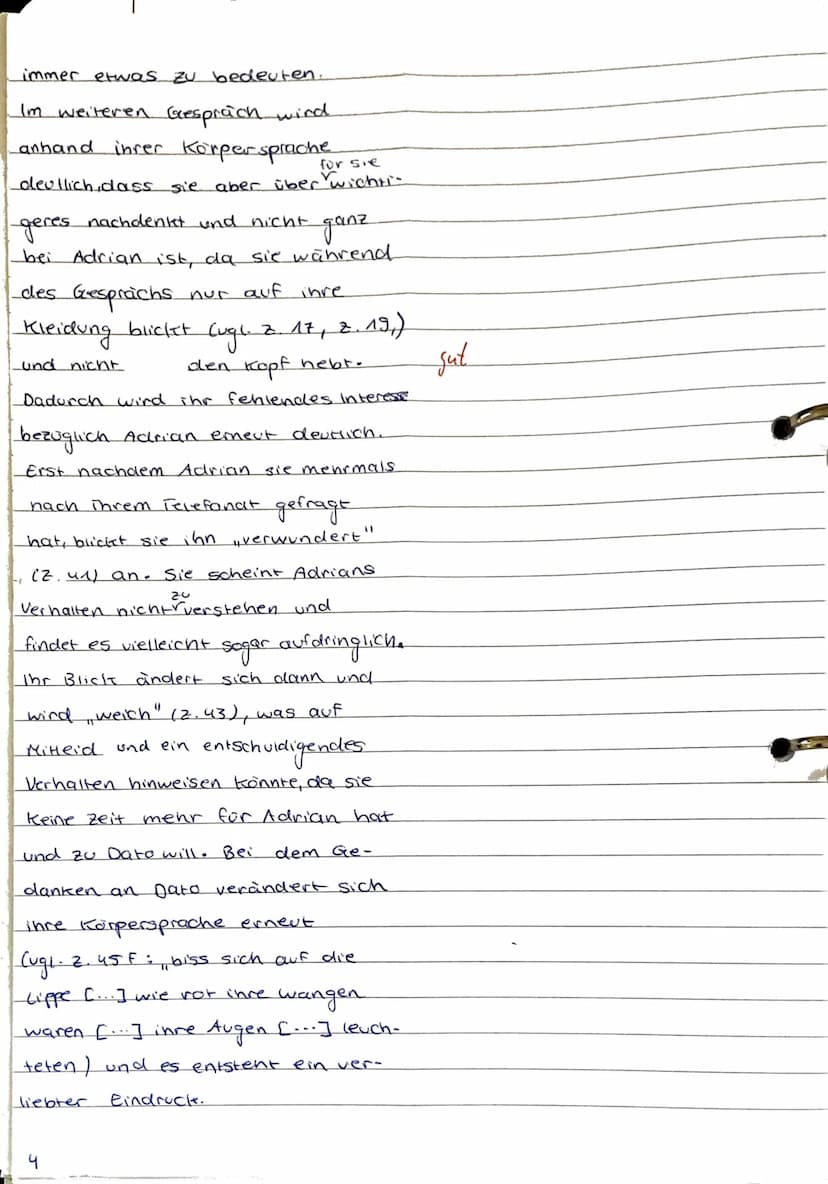 immer etwas zu bedeuten.
Im weiteren Gespräch wird
anhand ihrer Körpersprache
für sie
deutlich, dass sie aber über wichti-
geres nachdenkt und nicht ganz
bei Adrian ist, da sie während
des Gesprächs nur auf ihre
Kleidung blickt (vgl. Z. 17, Z. 19,)
und nicht den Kopf hebt. gut
Dadurch wird ihr fehlendes Interesse
bezüglich Adrian erneut deutlich.
Erst nachdem Adrian sie mehrmals
nach ihrem Telefonat gefragt
hat, blickt sie ihn „verwundert"
(Z. 41) an. Sie scheint Adrians
zu
Verhalten nicht verstehen und
findet es vielleicht sogar aufdringlich.
Ihr Blick ändert sich dann und
wird „weich" (Z. 43), was auf
Mitleid und ein entschuldigendes
Verhalten hinweisen könnte, da sie
keine Zeit mehr für Adrian hat
und zu Dato will. Bei dem Ge-
danken an Dato verändert sich
ihre Körpersprache erneut
(vgl. Z. 45 f: „biss sich auf die
Lippe [...] wie rot ihre Wangen
waren [...] ihre Augen [...] leuch-
teten) und es entsteht ein ver-
liebter Eindruck.
4